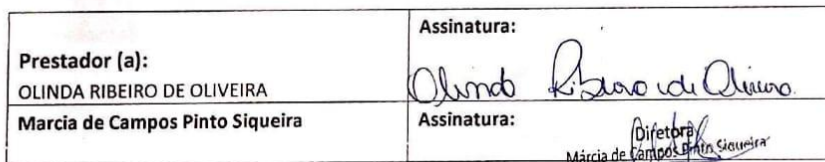 Assinatura:
Prestador (a):
OLINDA RIBEIRO DE OLIVEIRA
Olinda Ribeiro de Oliveira
Marcia de Campos Pinto Siqueira
Assinatura:
Diretora
Márcia de Campos Pinto Siqueira